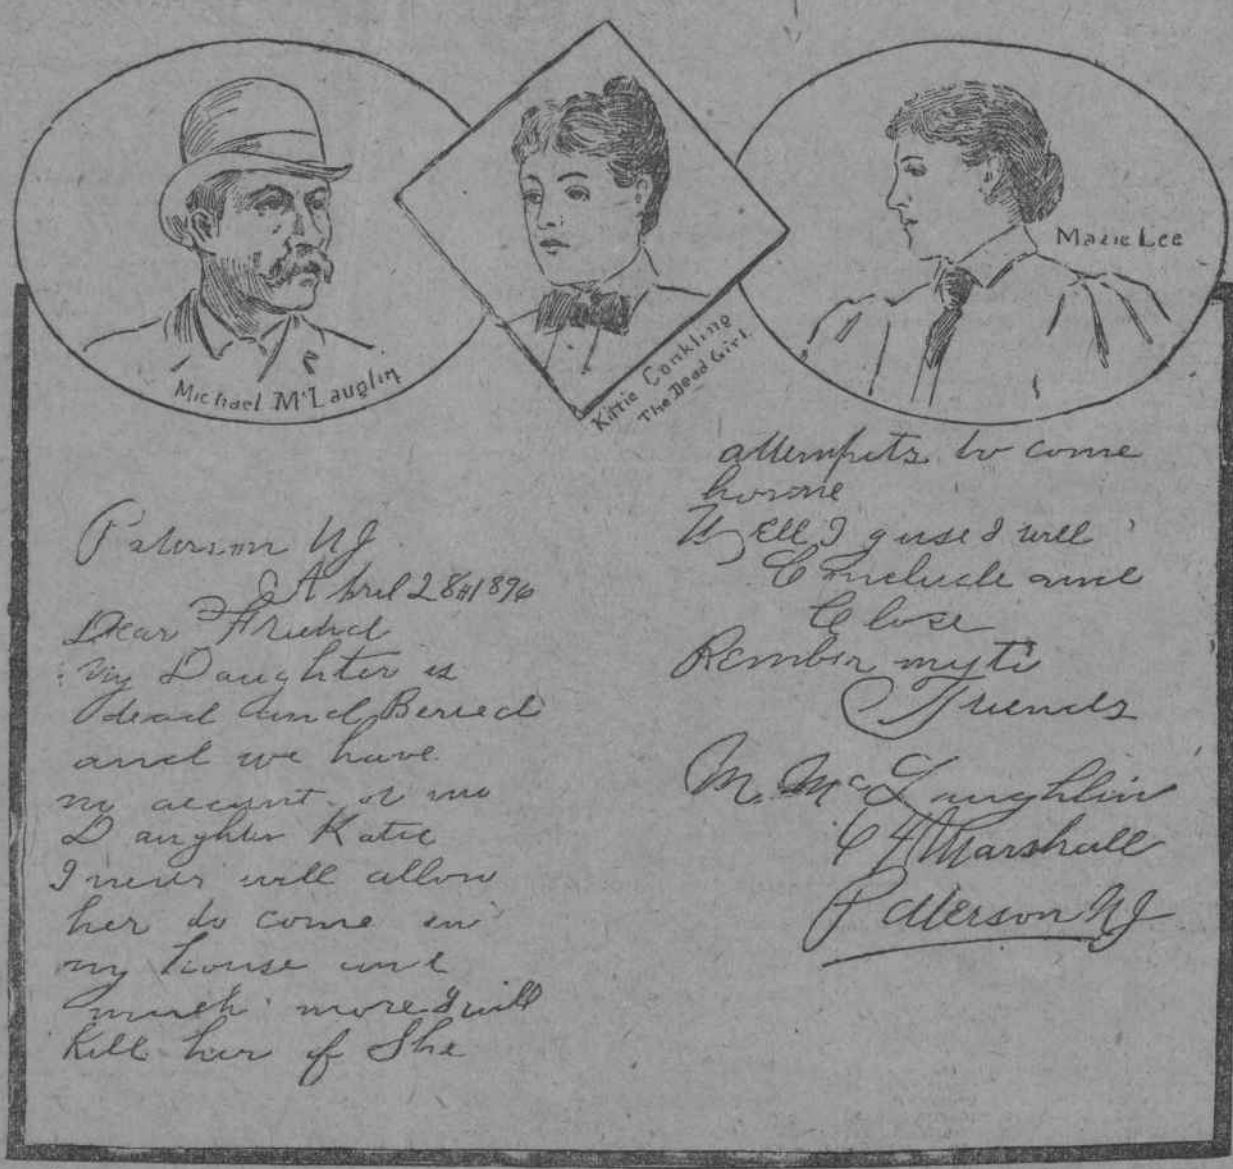 Michael McLaughlin
Kittie Conkling
The Dead Girl.
Mazie Lee
Paterson NJ
April 28th 1896
Dear Friend
my Daughter is
dead and Beried
and we have
no account of
Daughter Katie
I never will allow
her to come in
my house and
much more I will
Kill her if She
attempts to come
home
Well I guse I will
Conclude and
Close
Rember my to
Friends
M. McLaughlin
Marshall
Patterson NJ